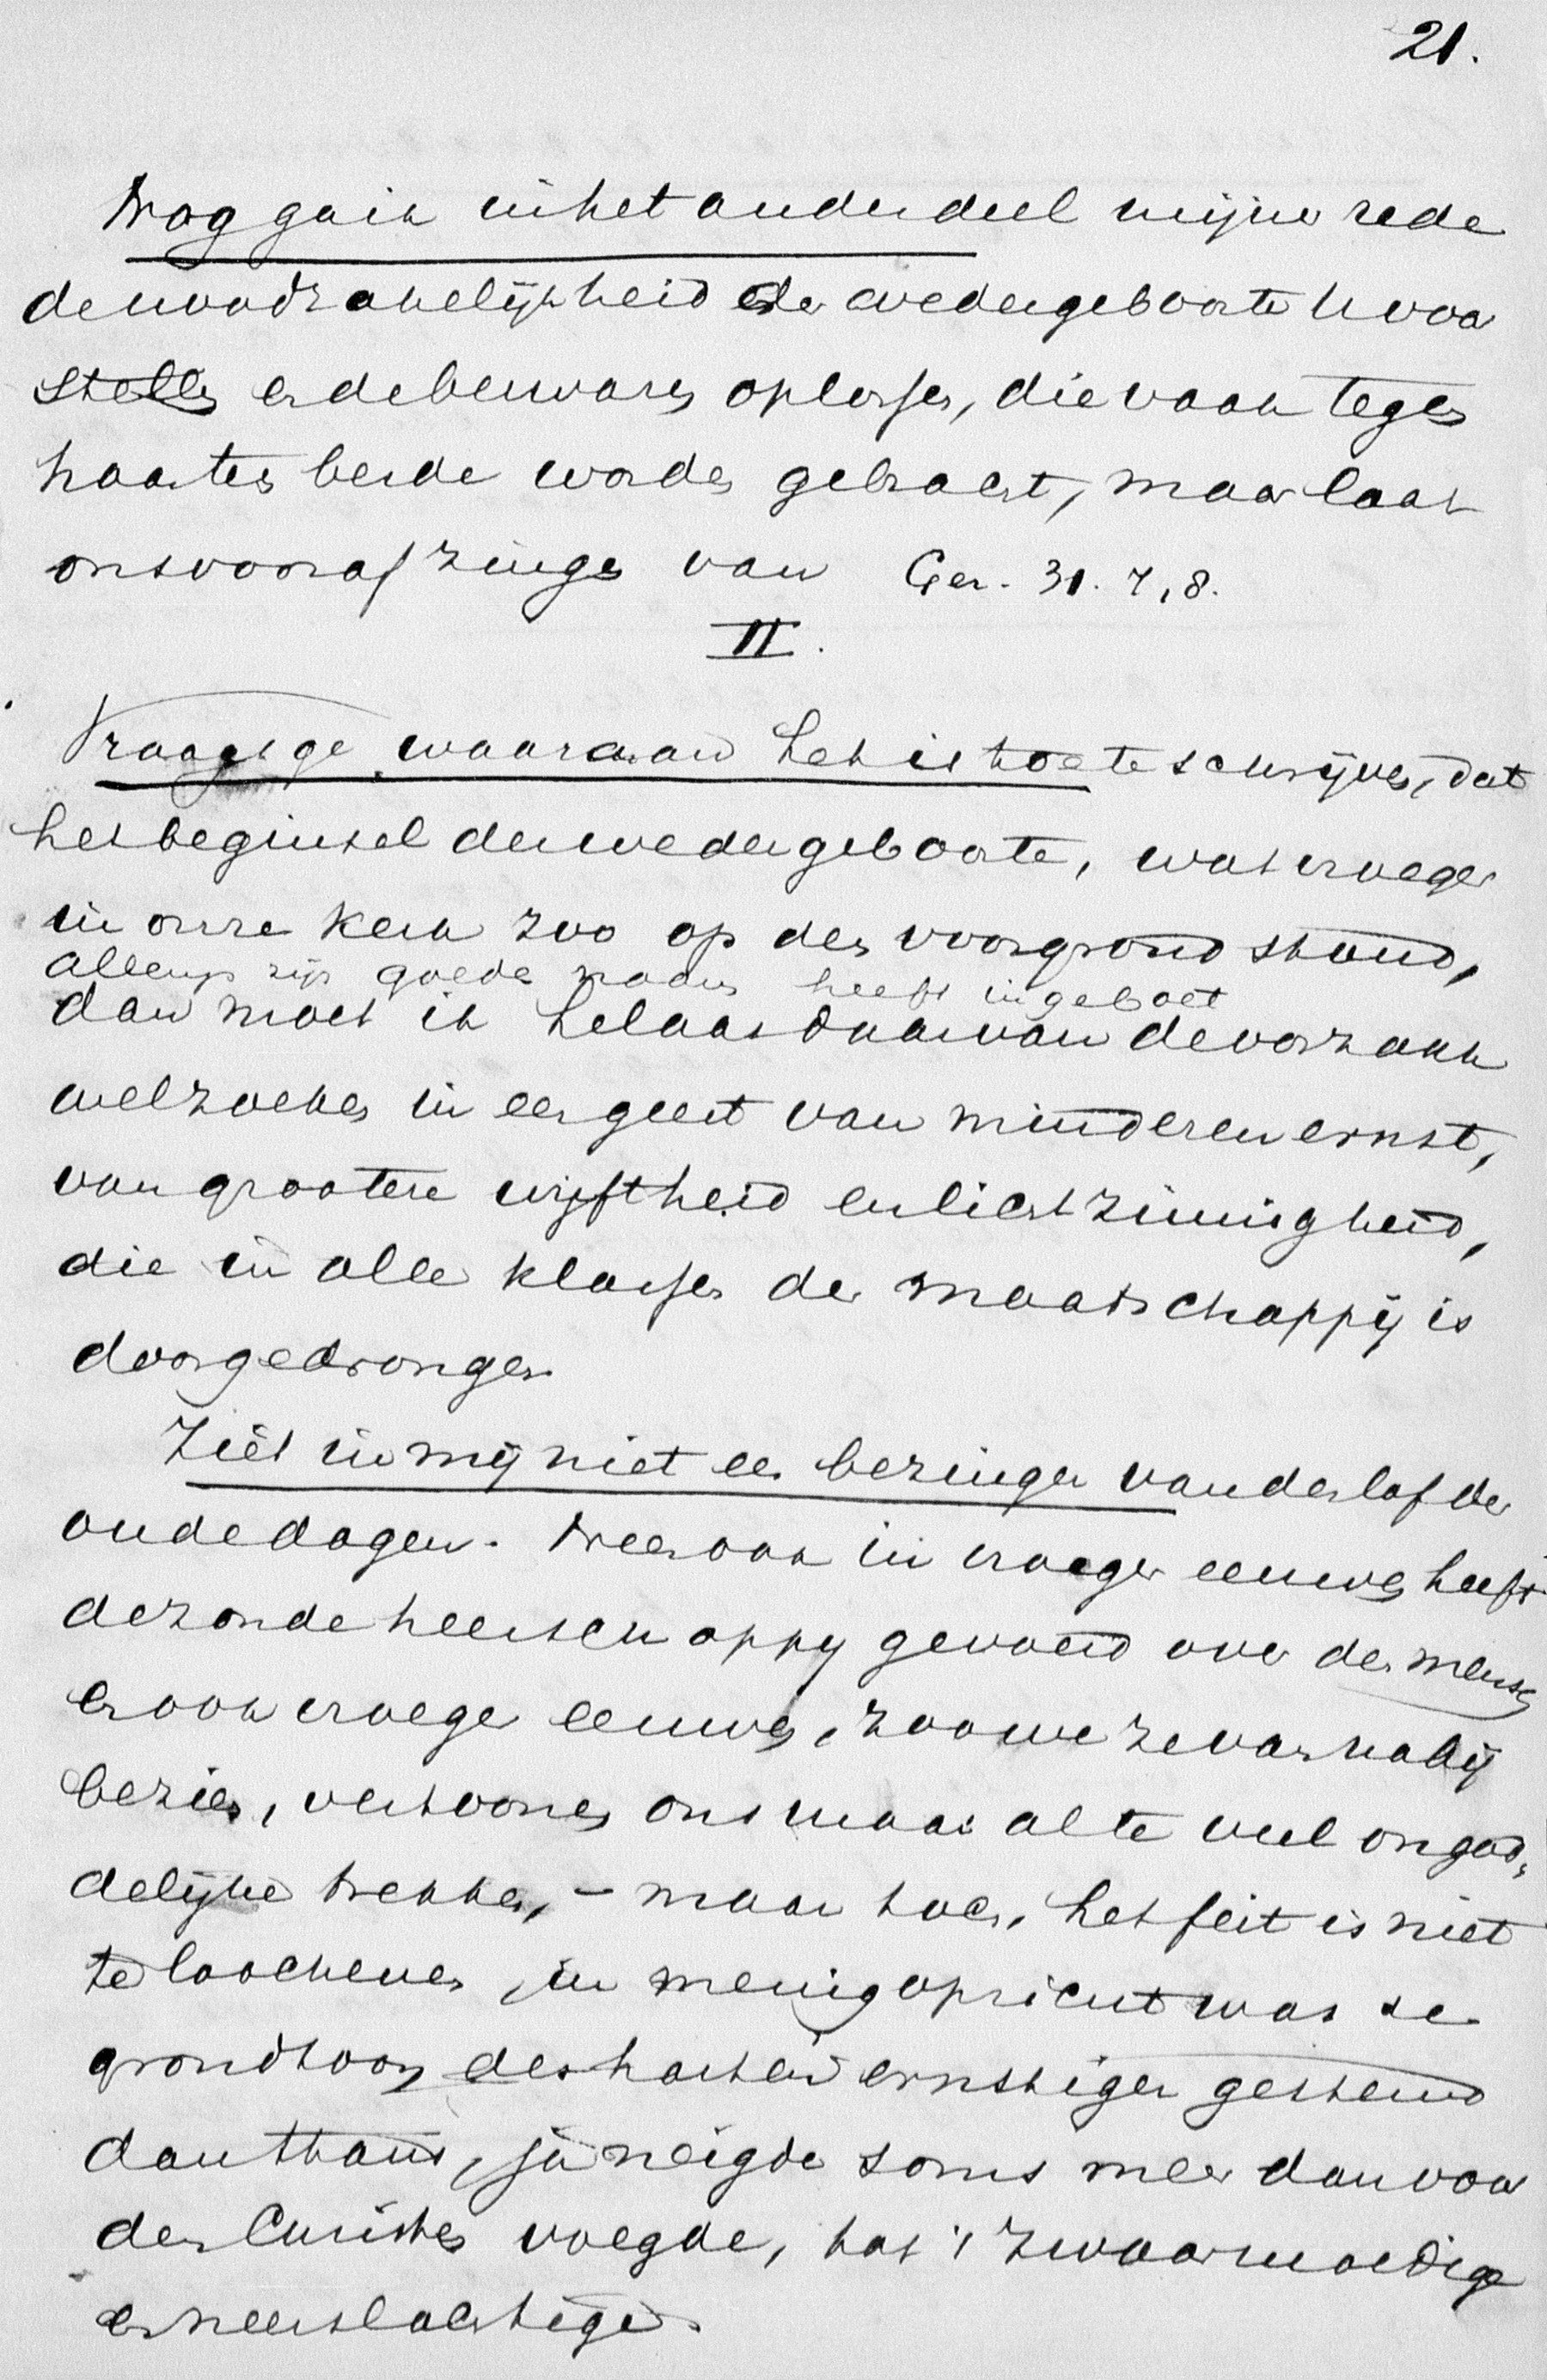 21.
Nog ga ik in het ander deel mijner rede
de noodzakelijkheid der wedergeboorte U voor
stellen en de bezwaren oplossen, die vaak tegen
haar ter beide worden gebracht, maar laat
ons vooraf zingen van Gez. 31. 7, 8.
II.
Vraagt ge waaraan het is toe te schrijven, dat
het beginsel der wedergeboorte, wat vroeger
in onze kerk zoo op den voorgrond stond,
zijn goede naam heeft ingeboet
dan moet ik helaas daarvan de oorzaak
wel zoeken in een geest van minderen ernst,
van grootere wuftheid en lichtzinnigheid,
die in alle klassen der maatschappij is
doorgedrongen.
Ziet in mij niet een bezinger van den lof der
oude dagen. Neen ook in vroeger eeuwen heeft
de zonde heerschappij gevoerd over den mensch
en ook vroeger eeuwen, zoo we ze van nabij
bezien, vertoonen ons maar al te veel ongod-
delijke trekken, - maar toch, het feit is niet
te loochenen, in menig opzicht was de
grondtoon des harten ernstiger gestemd
dan thans, ja neigde soms meer dan voor
den Christen voegde, tot 't zwaarmoedige
en neerslachtige.